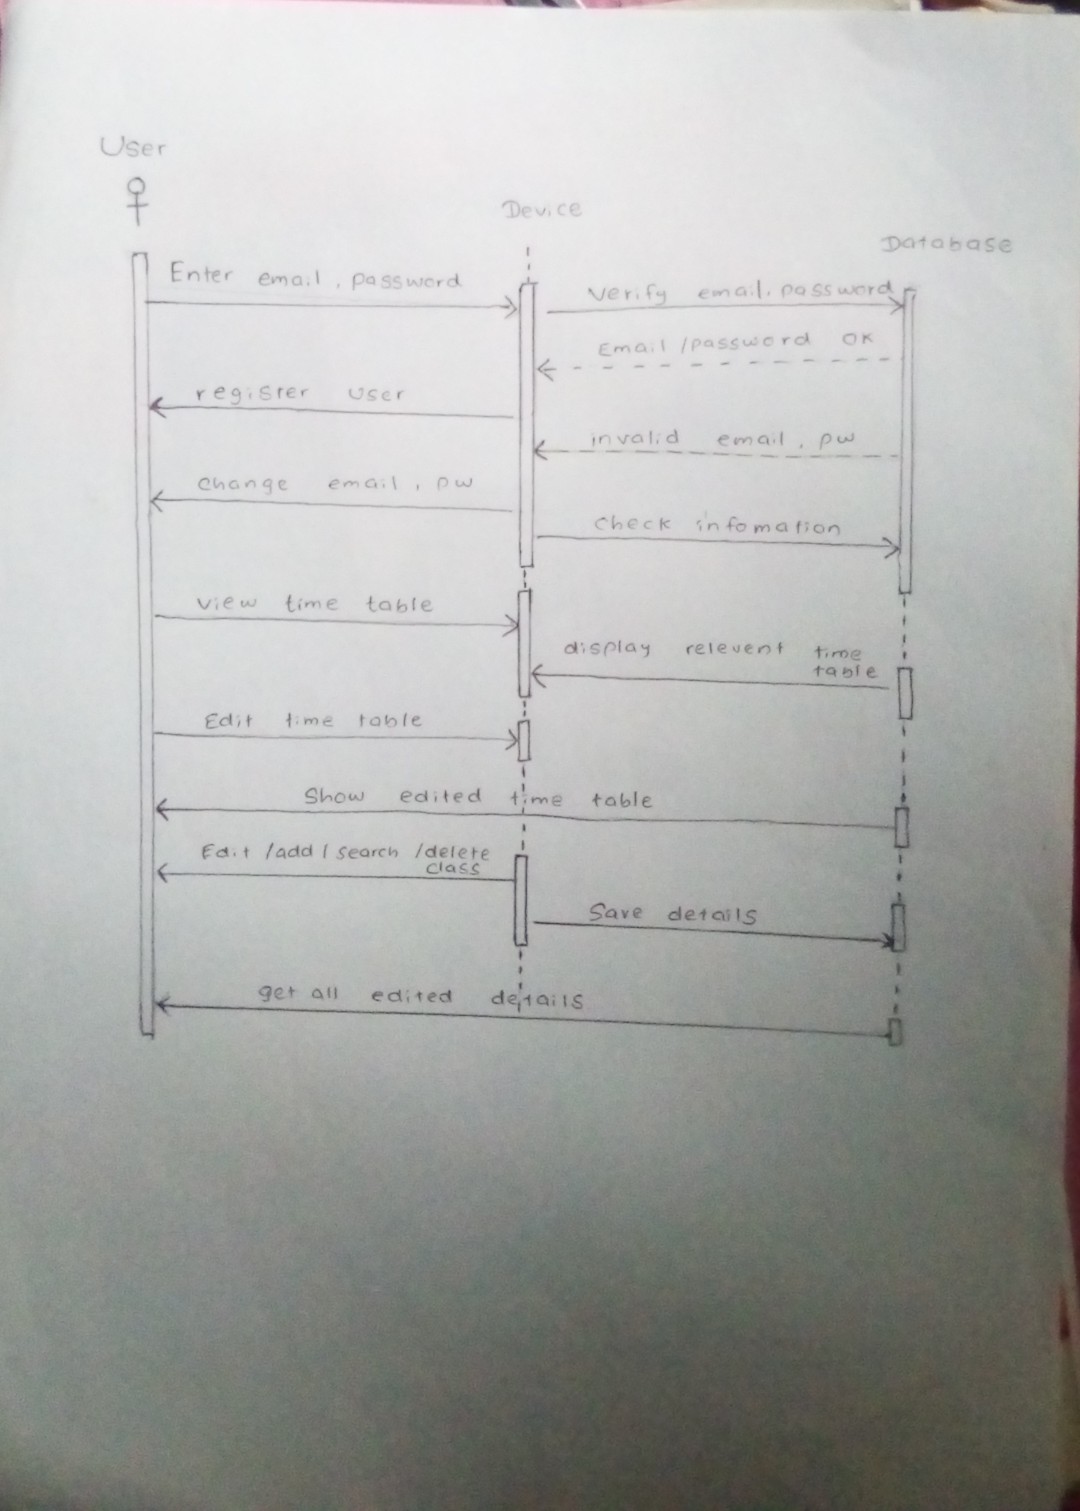 User
Device
Database
Enter email, password
verify email, password
Email /password OK
register user
invalid email, pw
change email, pw
check infomation
view time table
display relevent time
table
Edit time table
Show edited time table
Edit /add / search /delete
class
Save details
get all edited details